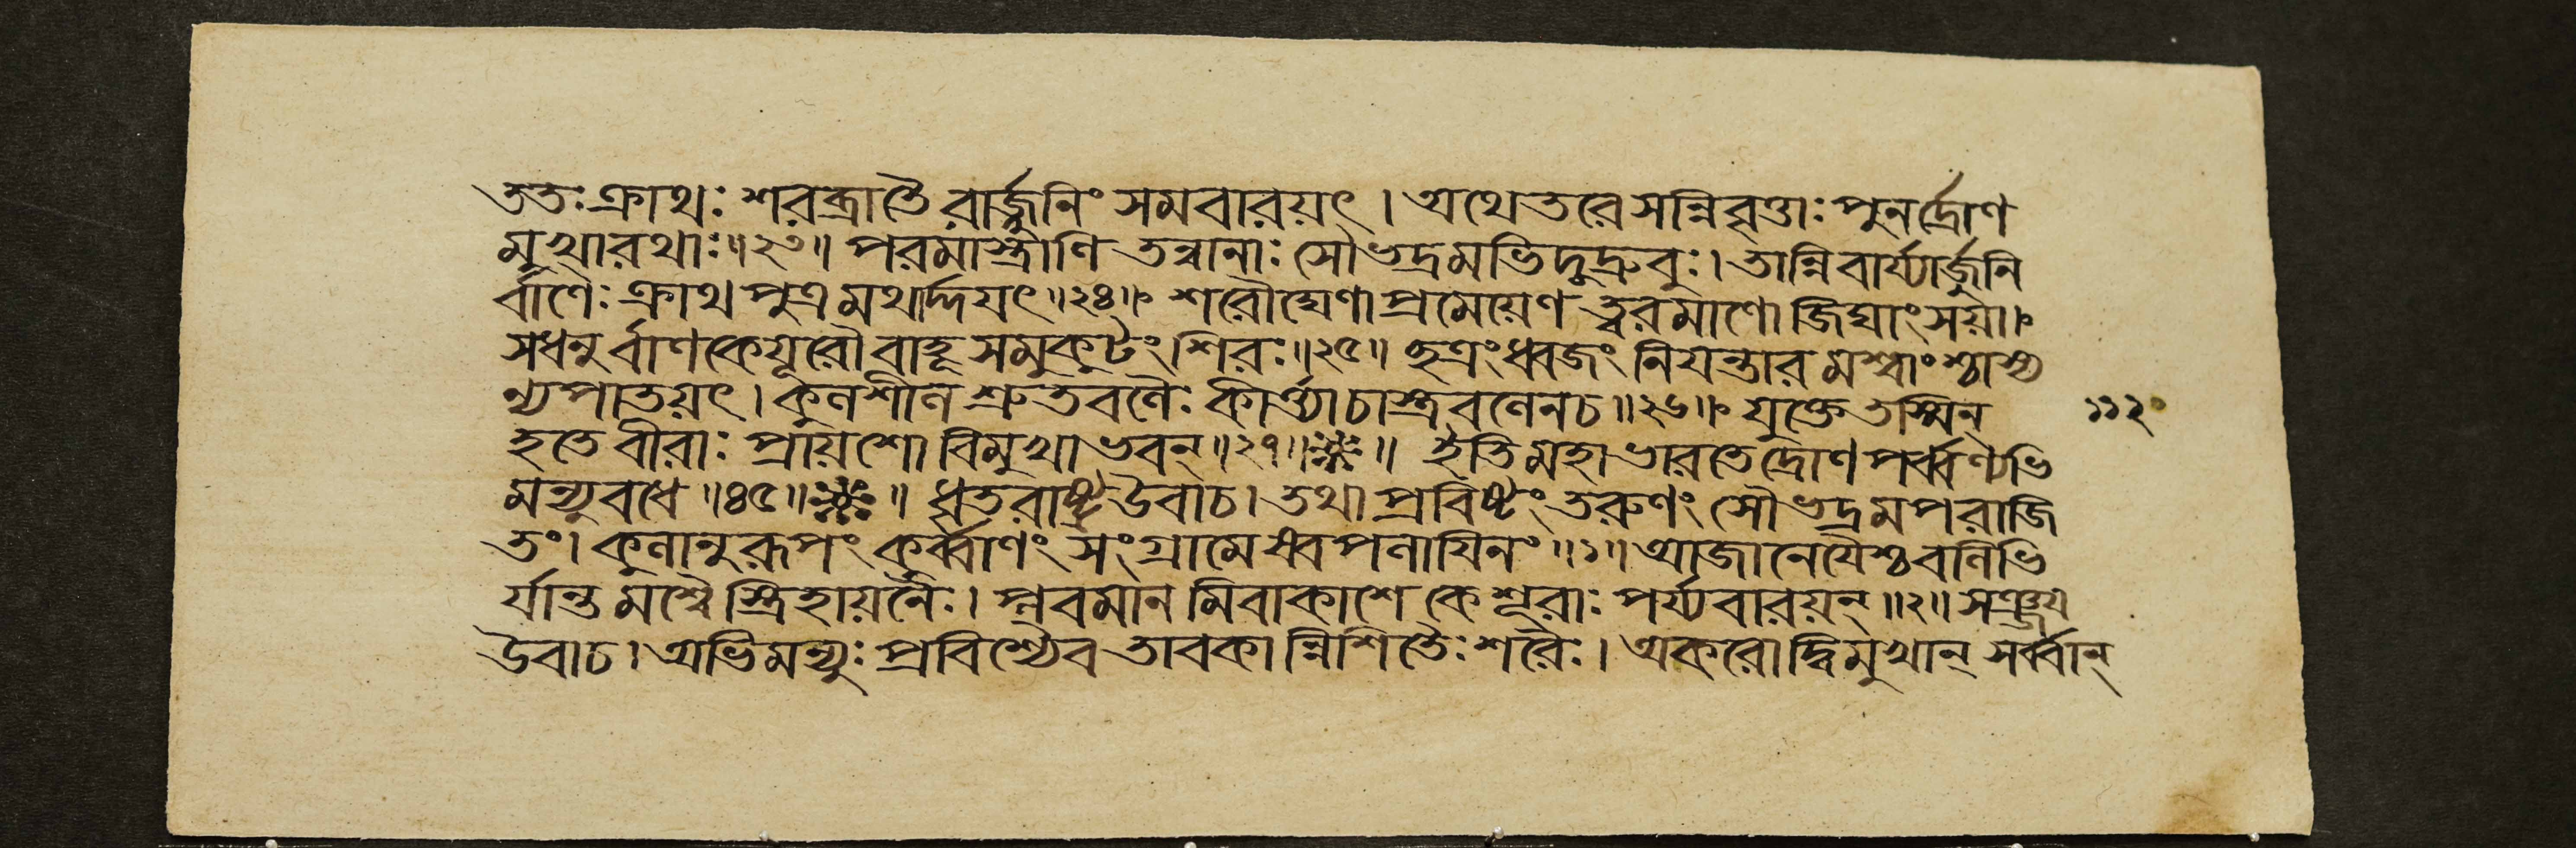 ততঃ ক্রাথঃ শরব্রাতৈরার্জ্জুনিং সমবারয়ৎ । অথেতরে সন্নিবৃত্তাঃ পুনর্দ্রোণ
মুখারথাঃ ॥ ২৩ ॥ পরমাস্ত্রাণি তন্বানাঃ সৌভদ্রমভিদুদ্রুবুঃ । তান্নিবার্য্যার্জুনি
র্বাণৈঃ ক্রাথপুত্রমথার্দ্দয়ৎ ॥ ২৪ ॥ শরৌঘেণাপ্রমেয়েণ ত্বরমাণো জিঘাংসয়া ।
সধনুর্বাণকেয়ূরৌ বাহূ সমুকুটং শিরঃ ॥ ২৫ ॥ ছত্রং ধ্বজং নিয়ন্তারমশ্বাংশ্চাস্য
ন্যপাতয়ৎ । কুলশীলশ্রুতবলৈঃ কীর্ত্ত্যাচাস্ত্রবলেনচ ॥ ২৬ ॥ যুক্তে তস্মিন্
হতে বীরাঃ প্রায়শো বিমুখাভবন্ ॥ ২৭ ॥ ॥ ইতি মহাভারতে দ্রোণপর্ব্বণ্যভি
মন্যুবধে ॥ ৪৫ ॥ ॥ ধৃতরাষ্ট্র উবাচ । তথা প্রবিষ্টং তরুণং সৌভদ্রমপরাজি
তং । কুলানুরূপং কুর্ব্বাণং সংগ্রামেষ্বপলায়িনং ॥ ১ ॥ আজানেয়ৈশ্চ বলিভি
র্যান্তমশ্বৈস্ত্রিহায়নৈঃ । প্লবমানমিবাকাশে কে শূরাঃ পর্য্যবারয়ন্ ॥ ২ ॥ সঞ্জয়
উবাচ । অভিমন্যুঃ প্রবিশ্যৈব তাবকান্নিশিতৈঃ শরৈঃ । অকরোদ্বিমুখান্ সর্ব্বান্
১১২